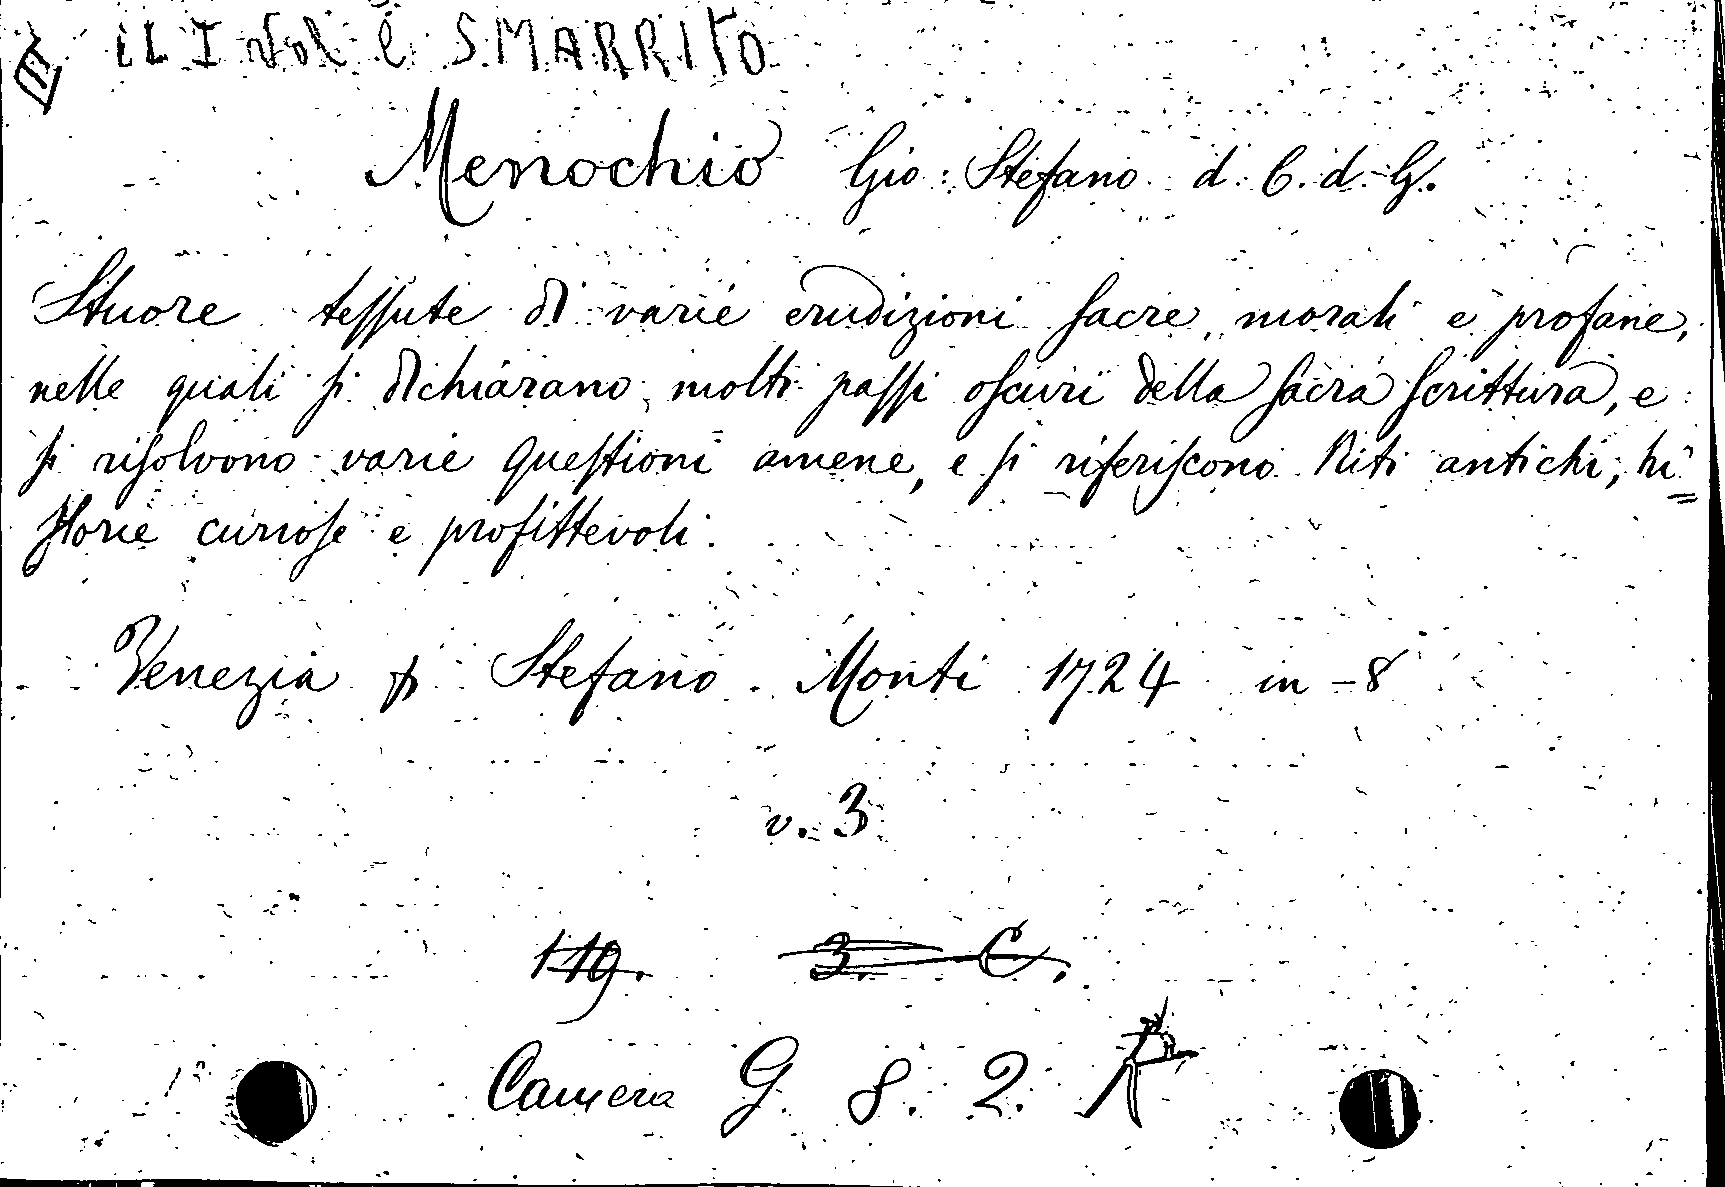 IL I Vol è SMARRITO
Menochio Gio: Stefano d. C. d. G.
Stuore tessute di varie erudizioni sacre, morali e profane,
nelle quali si dichiarano molti passi oscuri della sacra scrittura, e
si risolvono varie questioni amene, e si riferiscono Riti antichi, hi=
storie curiose e profittevoli.
Venezia p Stefano Monti 1724 in-8
v. 3
119. 3. C.
Camera G. 8. 2.